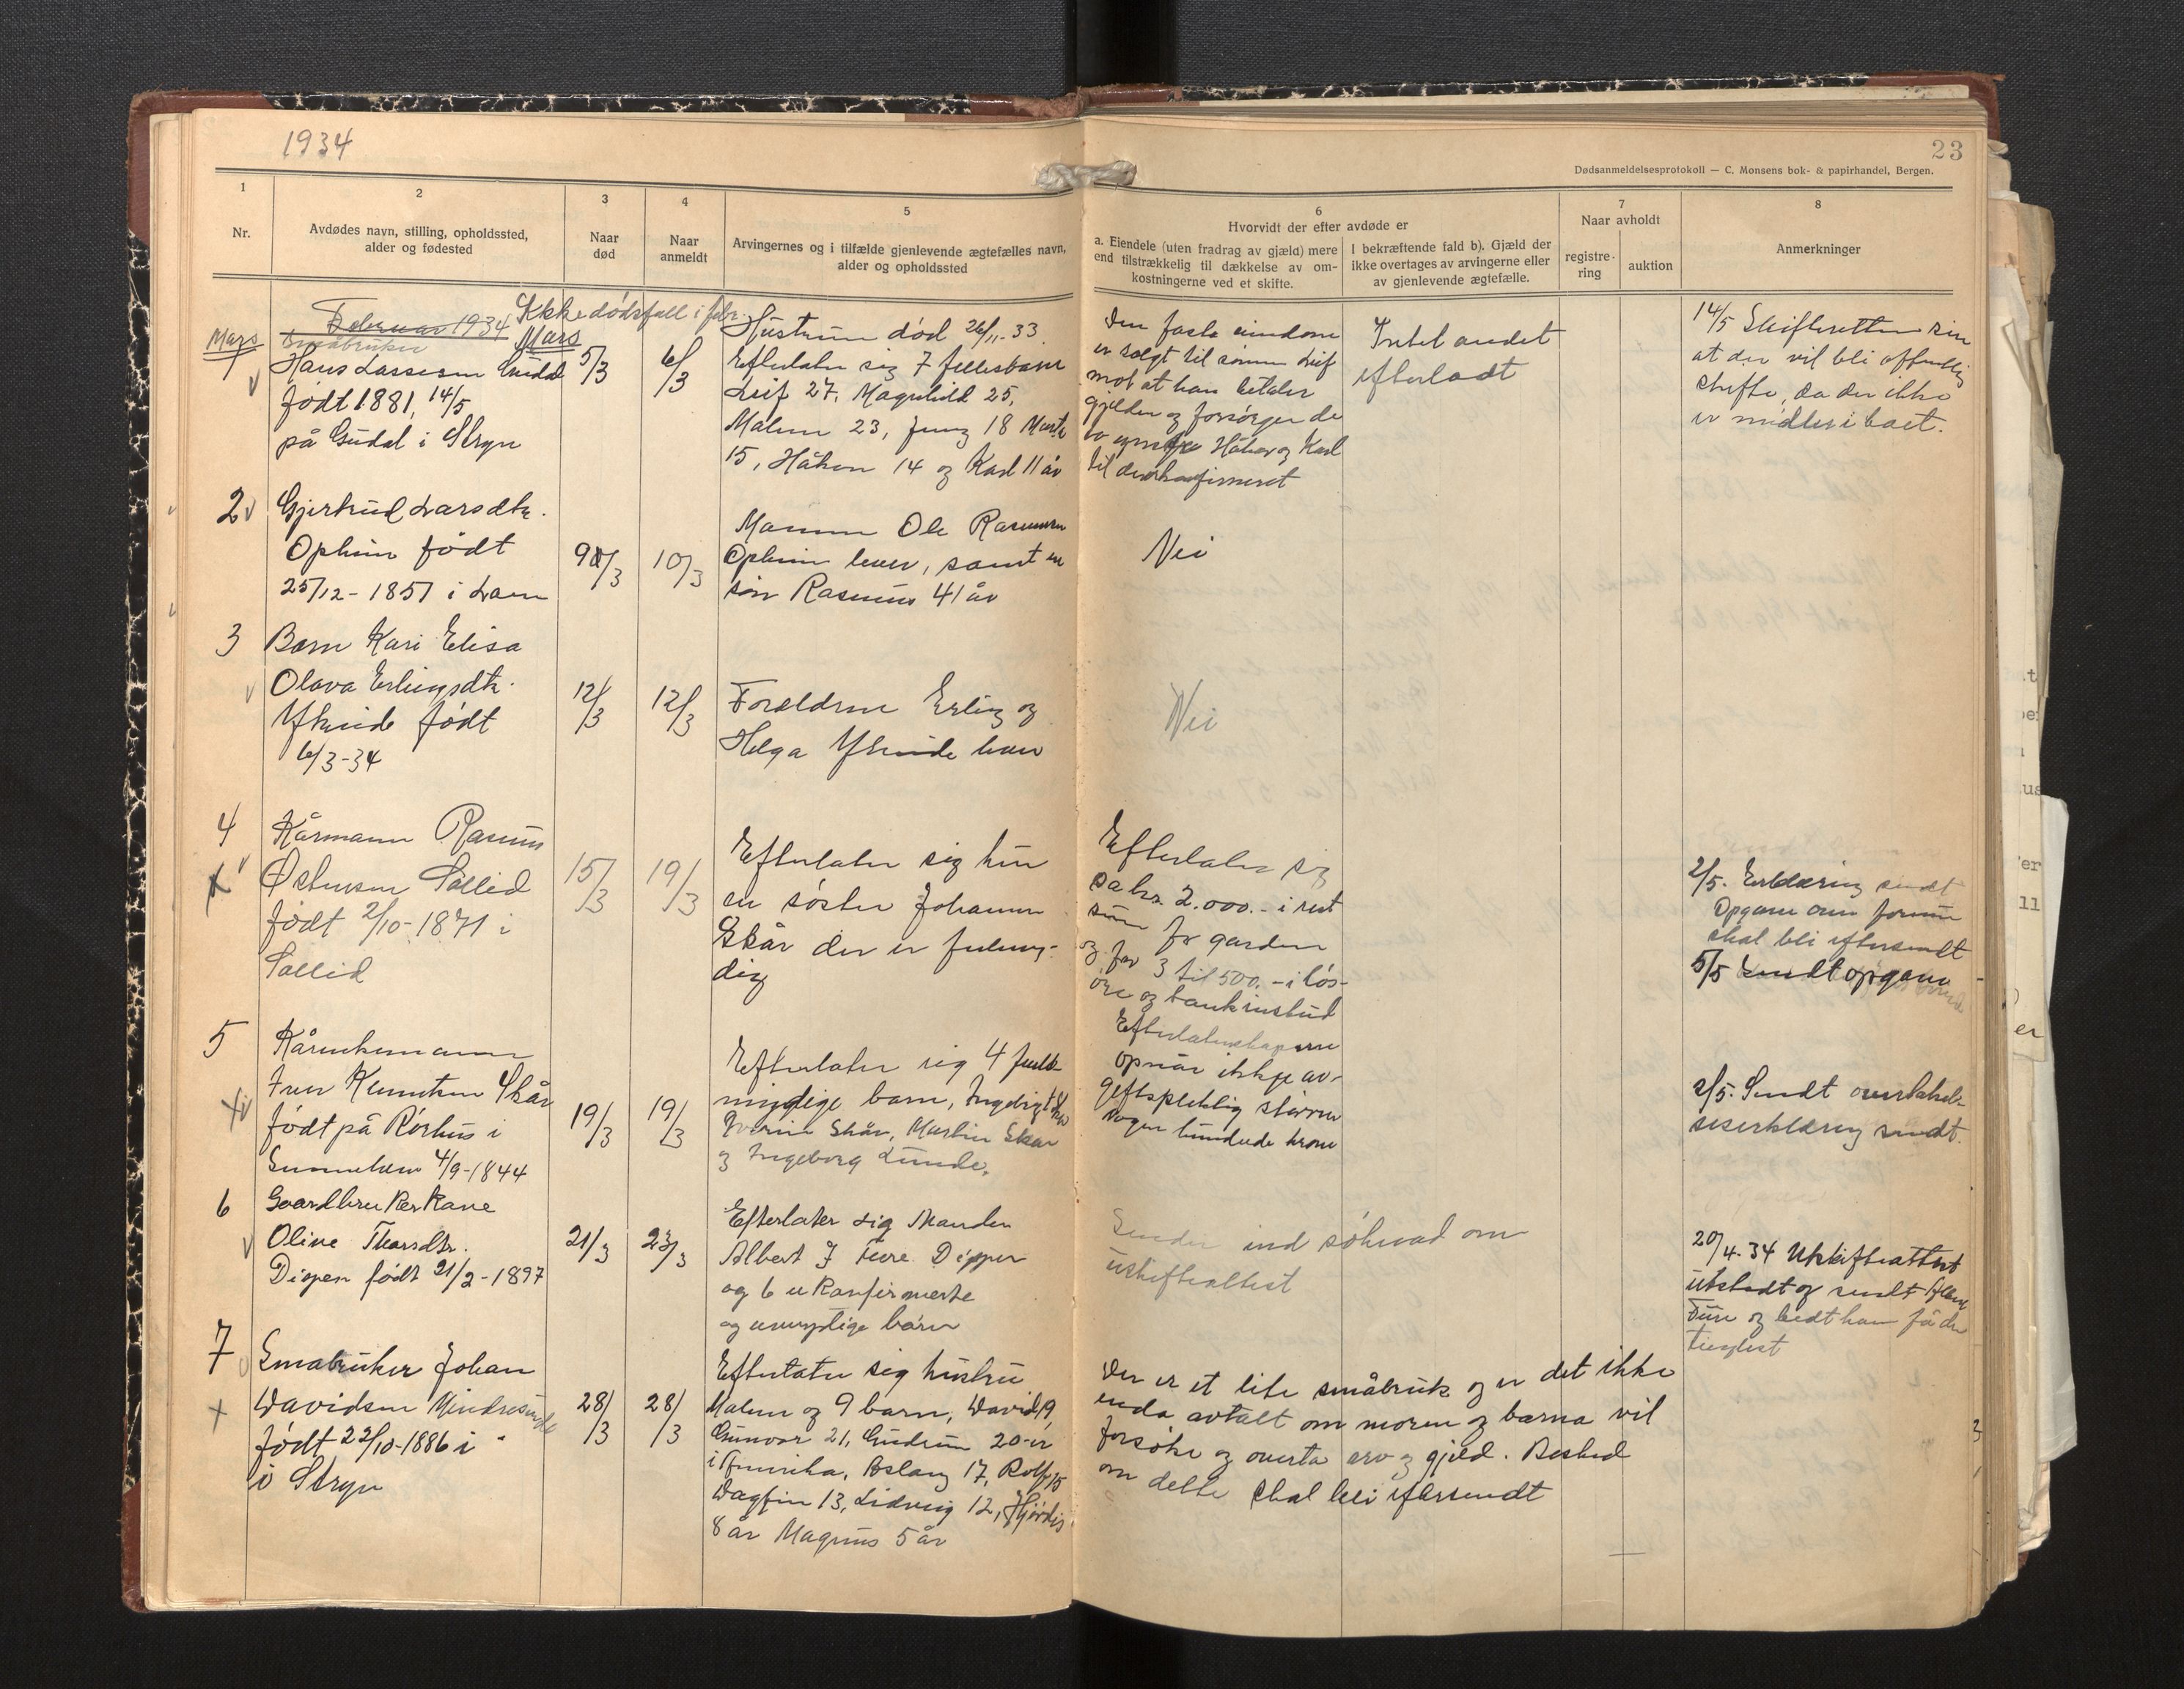 1934
23
Dødsanmeldelsesprotokoll — C. Monsens bok- & papirhandel, Bergen.
1
Nr.
2
Avdødes navn, stilling, opholdssted,
alder og fødested
3
Naar
død
4
Naar
anmeldt
5
Arvingernes og i tilfælde gjenlevende ægtefælles navn,
alder og opholdssted
6
Hvorvidt der efter avdøde er
a. Eiendele (uten fradrag av gjæld) mere
end tilstrækkelig til dækkelse av om-
kostningerne ved et skifte.
I bekræftende fald b). Gjæld der
ikke overtages av arvingerne eller
av gjenlevende ægtefælle.
7
Naar avholdt
registre-
ring
auktion
8
Anmerkninger
Februar 1934 Ikke dødsfall i febr.
Mars
Mars
1
Småbruker
Hans Lassesen
født 1881, 14/5
på Gudal i Stryn
5/3
6/3
Hustruen død 26/11-33.
Efterlater sig 7 fellesbarn
Leif 27, Magnhild 25,
Malene 23, Jenny 18
15, Håkon 14 og Karl 11 år
Den faste eiendom
er solgt til sønnen Leif
mot at han betaler
gjelden og forsørger de
to yngste Håkon og Karl
til de er konfirmeret
Intet andet
efterladt
14/5 Skifteretten
at der vil bli offentlig
skifte, da der ikke
er midler i boet.
2
Gjertrud Larsdtr.
Opheim født
25/12-1851 i
9/3
10/3
Mannen Ole Rasmussen
Opheim lever, samt en
søn Rasmus 41 år
Nei
3
Barn Kari Elisa
Olava Erlingsdtr.
født
6/3-34
12/3
12/3
Foreldrene Erling og
Helga
Nei
4
Kårmann Rasmus
Sollid
født 2/10-1871 i
Sollid
15/3
19/3
Efterlater sig kun
en søster Johanne
Skår der er fulmyn-
dig
Efterlater sig
ca kr. 2.000.- i rest
sum for garden
og for 3 til 500.- i løs-
øre og bankinskud
2/5. Erklæring sendt
Opgave over formue
skal bli eftersendt
5/5 Sendt opgave
5
Kårenkemann
Iver Knutsen Skår
født på Rørhus i
4/9-1844
19/3
19/3
Efterlater sig 4 fuld-
myndige barn,
Skår, Martin Skår
og Ingeborg Lunde.
Efterlatenskapene
opnår ikkje av-
giftspliktig større
nogen hundrede kroner
2/5. Sendt overtakel-
seserklæring sendt.
6
Gardbrukerkone
Oline
født 21/2-1897
21/3
23/3
Efterlater sig Manden
Albert J
og 6 ukonfirmerte
og umyndige børn
Sender ind søknad om
uskifteattest
20/4-34 Uskifteattest
utstedt og sendt
og bedt ham få den
tinglest
7
Småbruker Johan
Davidsen
født 22/10-1886 i
i Stryn
28/3
28/3
Efterlater sig hustru
Malene og 9 barn, David 19,
Gunvor 21, Gudrun 20-er
i Amerika, Aslaug 17, Rolf 15
Dagfin 13, Lidveig 12, Hjørdis
8 år Magnus 5 år
Der er et lite småbruk og er det ikke
enda avtalt om moren og barna vil
forsøke og overta arv og gjeld. Besked
om dette skal bli eftersendt